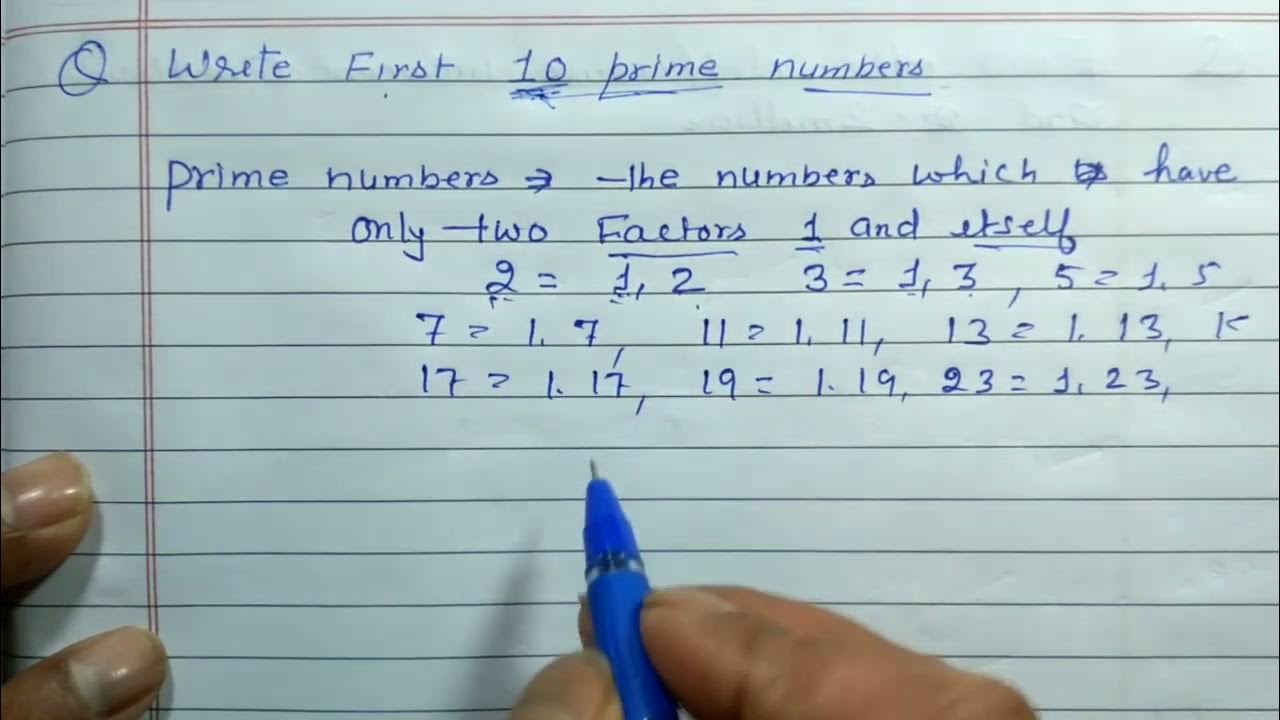 Q Write First 10 prime numbers
prime numbers → the numbers which have
only two Factors 1 and itself
2 = 1, 2 3 = 1, 3 , 5 = 1, 5
7 = 1. 7, 11 = 1. 11, 13 = 1. 13,
17 = 1. 17, 19 = 1. 19, 23 = 1. 23,